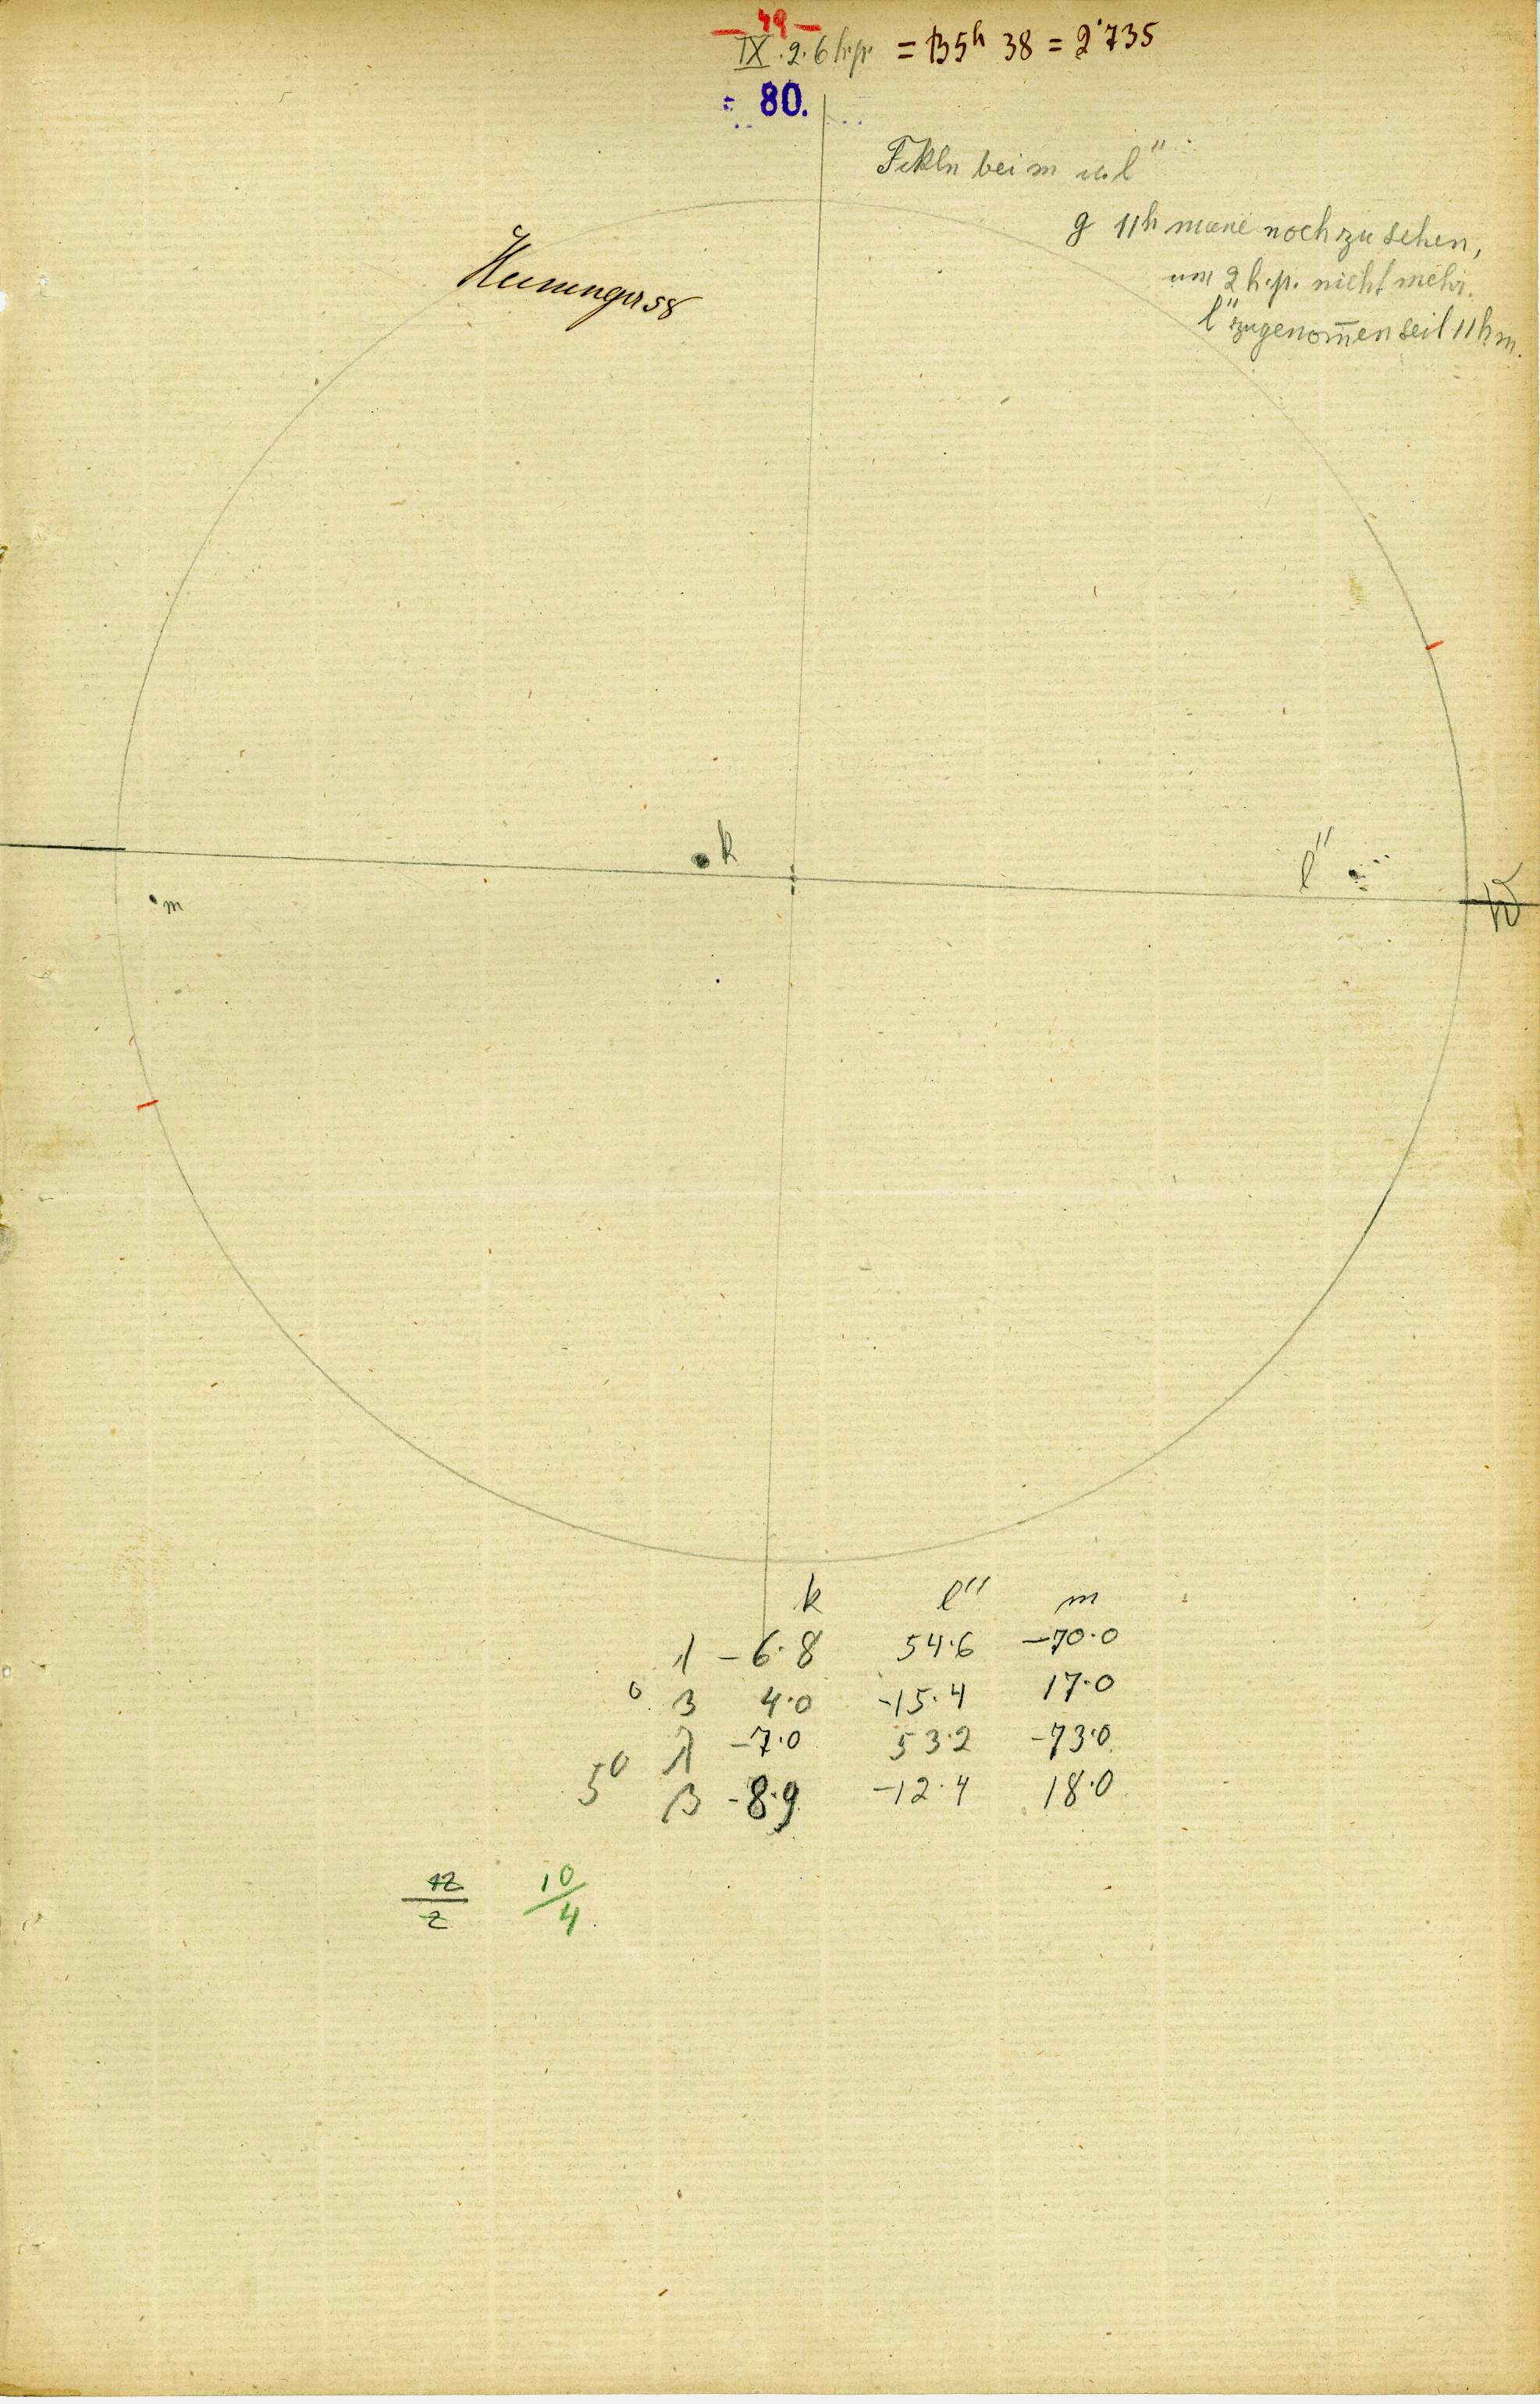 — 49 —
IX. 2. 6 h. p. = B 5h 38 = 2·735
80.
Fckln bei m u. l"
g 11h mane noch zu sehen,
um 2 h. p. nicht mehr.
l" zugenom̅en seit 11h m.
k
l"
W
m
k l" m
λ -6·8 54·6 -70·0
0 β 4·0 -15·4 17·0
λ -7·0 53·2 -73·0
50 β -8·9 -12·4 18·0
12/2 10/4